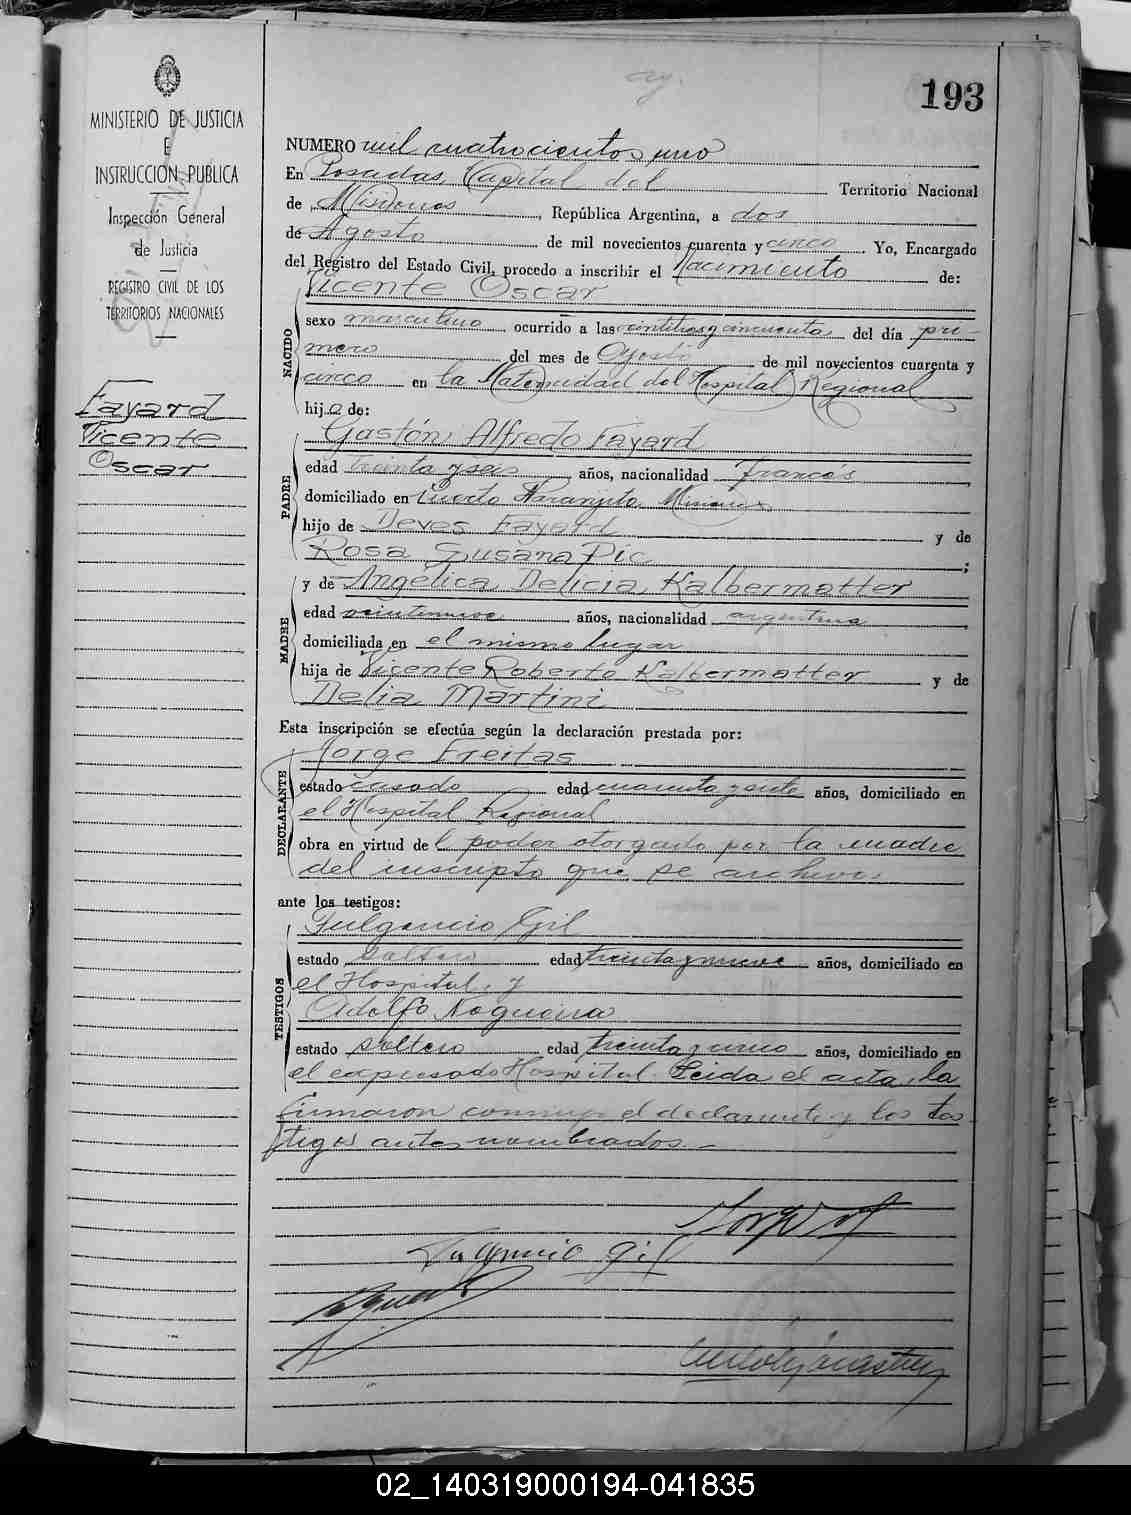 193
MINISTERIO DE JUSTICIA
E
INSTRUCCION PUBLICA
Inspección General
de Justicia
REGISTRO CIVIL DE LOS
TERRITORIOS NACIONALES
Fayard
Vicente
Oscar
NUMERO mil cuatrocientos uno
En Posadas, Capital del Territorio Nacional
de Misiones, República Argentina, a dos
de Agosto de mil novecientos cuarenta y cinco Yo, Encargado
del Registro del Estado Civil, procedo a inscribir el Nacimiento de:
NACIDO
Vicente Oscar
sexo masculino ocurrido a las veintitres y cincuenta del día pri-
mero del mes de Agosto de mil novecientos cuarenta y
cinco en la Maternidad del Hospital Regional
hijo de:
PADRE
Gastón Alfredo Fayard
edad treinta y seis años, nacionalidad francés
domiciliado en Puerto Naranjito, Misiones
hijo de Deves Fayard y de
Rosa Susana Pic;
MADRE
y de Angélica Delicia Kalbermatter
edad veintinueve años, nacionalidad argentina
domiciliada en el mismo lugar
hija de Vicente Roberto Kalbermatter y de
Delia Martini
Esta inscripción se efectúa según la declaración prestada por:
DECLARANTE
Jorge Freitas
estado casado edad cuarenta y siete años, domiciliado en
el Hospital Regional
obra en virtud del poder otorgado por la madre
del inscripto que se archiva.
ante los testigos:
TESTIGOS
Fulgencio Gil
estado soltero edad treinta y nueve años, domiciliado en
el Hospital, y
Adolfo Nogueira
estado soltero edad treinta y cinco años, domiciliado en
el expresado Hospital. Leida el acta, la
firmaron conmigo el declarante y los tes
tigos antes nombrados.-
Fulgencio Gil
02_140319000194-041835